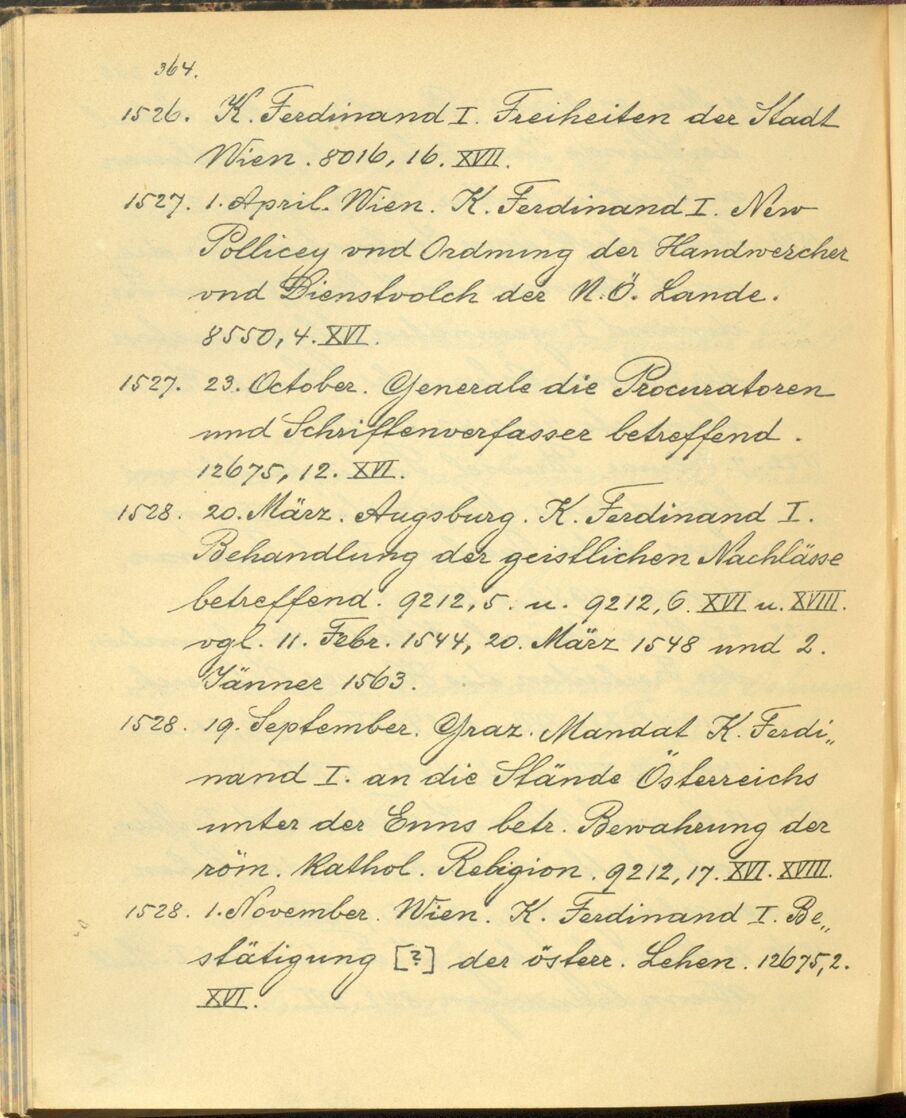 364.
1526. K. Ferdinand I. Freiheiten der Stadt
Wien. 8016, 16. XVII.
1527. 1. April. Wien. K. Ferdinand I. New
Pollicey vnd Ordnung der Handwercher
vnd Dienstvolch der N.Ö. Lande.
8550, 4. XVI.
1527. 23. October. Generale die Procuratoren
und Schriftenverfasser betreffend.
12675, 12. XVI.
1528. 20. März. Augsburg. K. Ferdinand I.
Behandlung der geistlichen Nachlässe
betreffend. 9212, 5. u. 9212, 6. XVI u. XVIII.
vgl. 11. Febr. 1544, 20. März 1548 und 2.
Jänner 1563.
1528. 19. September. Graz. Mandat K. Ferdi„
nand I. an die Stände Österreichs
unter der Enns betr. Bewahrung der
röm. kathol. Religion. 9212, 17. XVI. XVIII.
1528. 1. November. Wien. K. Ferdinand I. Be„
stätigung [?] der österr. Lehen. 12675, 2.
XVI.